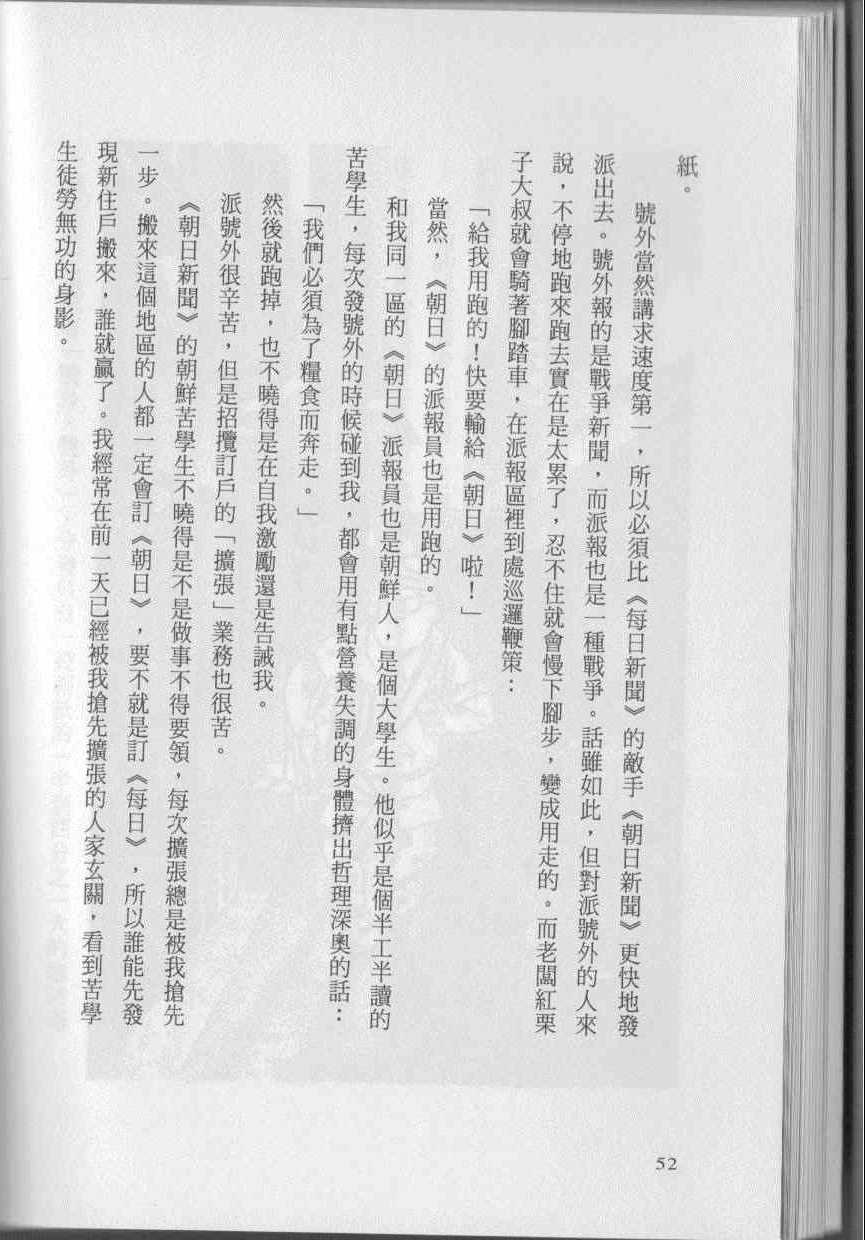 紙。
號外當然講求速度第一，所以必須比《每日新聞》的敵手《朝日新聞》更快地發
派出去。號外報的是戰爭新聞，而派報也是一種戰爭。話雖如此，但對派號外的人來
說，不停地跑來跑去實在是太累了，忍不住就會慢下腳步，變成用走的。而老闆紅栗
子大叔就會騎著腳踏車，在派報區裡到處巡邏鞭策：
「給我用跑的！快要輸給《朝日》啦！」
當然，《朝日》的派報員也是用跑的。
和我同一區的《朝日》派報員也是朝鮮人，是個大學生。他似乎是個半工半讀的
苦學生，每次發號外的時候碰到我，都會用有點營養失調的身體擠出哲理深奧的話：
「我們必須為了糧食而奔走。」
然後就跑掉，也不曉得是在自我激勵還是告誡我。
派號外很辛苦，但是招攬訂戶的「擴張」業務也很苦。
《朝日新聞》的朝鮮苦學生不曉得是不是做事不得要領，每次擴張總是被我搶先
一步。搬來這個地區的人都一定會訂《朝日》，要不就是訂《每日》，所以誰能先發
現新住戶搬來，誰就贏了。我經常在前一天已經被我搶先擴張的人家玄關，看到苦學
生徒勞無功的身影。
52